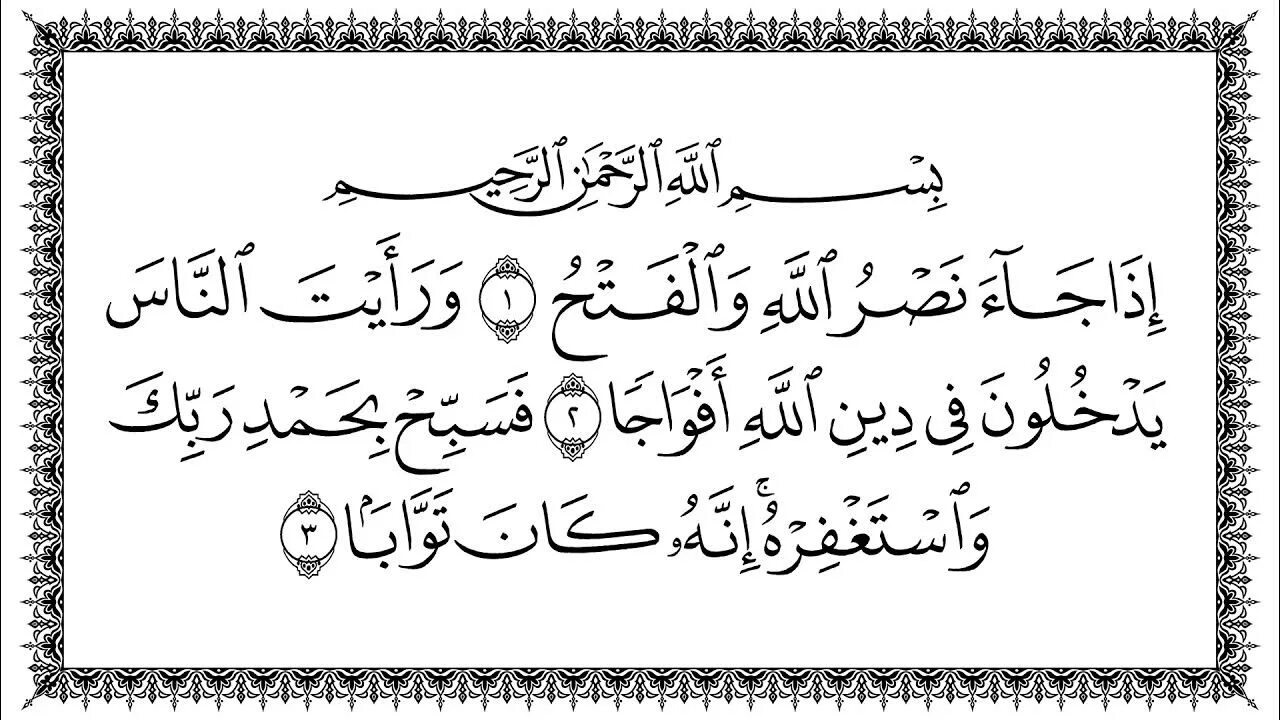 بِسْمِ ٱللَّهِ ٱلرَّحْمَٰنِ ٱلرَّحِيمِ
إِذَا جَآءَ نَصْرُ ٱللَّهِ وَٱلْفَتْحُ ١ وَرَأَيْتَ ٱلنَّاسَ
يَدْخُلُونَ فِى دِينِ ٱللَّهِ أَفْوَاجًا ٢ فَسَبِّحْ بِحَمْدِ رَبِّكَ
وَٱسْتَغْفِرْهُ ۚ إِنَّهُۥ كَانَ تَوَّابَۢا ٣